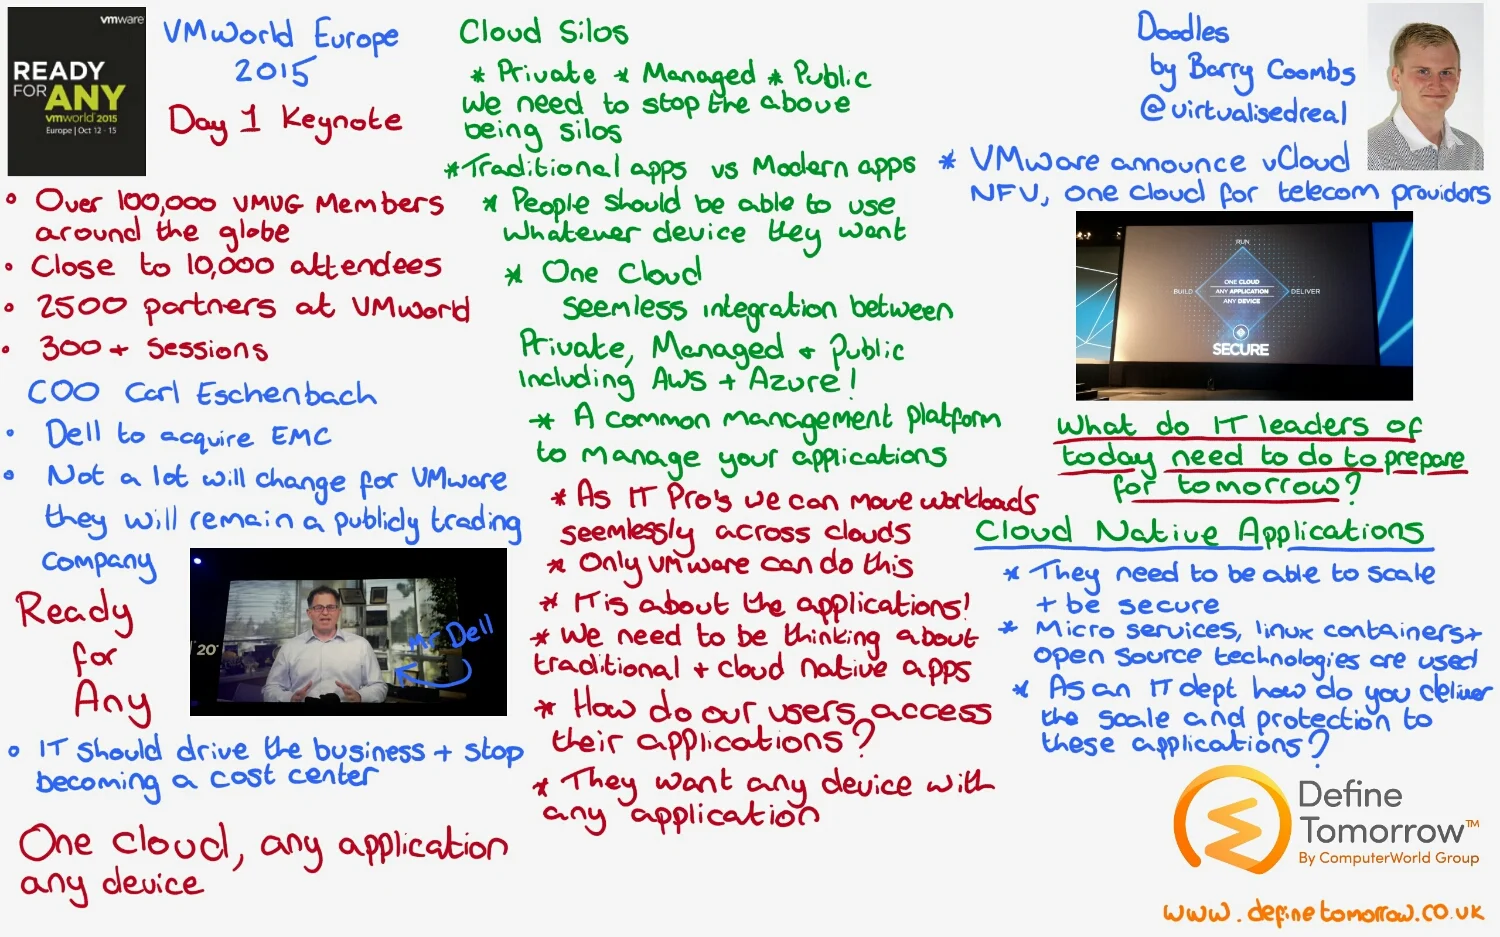 vmware
READY
FOR ANY
vmworld 2015
Europe | Oct 12 - 15
VMworld Europe
2015
Day 1 Keynote
• Over 100,000 VMUG Members
around the globe
• Close to 10,000 attendees
• 2500 partners at VMworld
• 300+ Sessions
COO Carl Eschenbach
• Dell to acquire EMC
• Not a lot will change for VMware
they will remain a publicly trading
company
Mr Dell
20
Ready
for
Any
• IT should drive the business + stop
becoming a cost center
One cloud, any application
any device
Cloud Silos
* Private * Managed * Public
We need to stop the above
being silos
* Traditional apps vs Modern apps
* People should be able to use
whatever device they want
* One Cloud
seemless integration between
Private, Managed + Public
Including AWS + Azure!
* A common management platform
to manage your applications
* As IT Pro's we can move workloads
seemlessly across clouds
* Only VMware can do this
* IT is about the applications!
* We need to be thinking about
traditional + cloud native apps
* How do our users access
their applications?
* They want any device with
any application
Doodles
by Barry Coombs
@virtualisedreal
* VMware announce vCloud
NFV, one cloud for telecom providors
RUN
ONE CLOUD
BUILD ANY APPLICATION DELIVER
ANY DEVICE
SECURE
What do IT leaders of
today need to do to prepare
for tomorrow?
Cloud Native Applications
* They need to be able to scale
+ be secure
* Micro services, linux containers +
open source technologies are used
* As an IT dept how do you deliver
the scale and protection to
these applications?
Define
Tomorrow™
By ComputerWorld Group
www.definetomorrow.co.uk